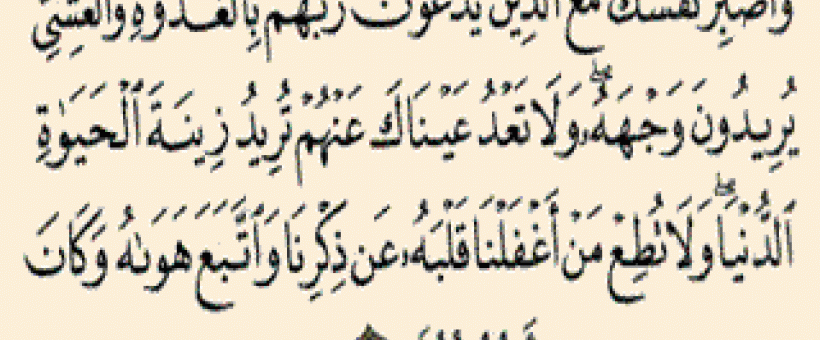 وَاصْبِرْ نَفْسَكَ مَعَ الَّذِينَ يَدْعُونَ رَبَّهُم بِالْغَدَوٰةِ وَالْعَشِيِّ
يُرِيدُونَ وَجْهَهُۥ ۖ وَلَا تَعْدُ عَيْنَاكَ عَنْهُمْ تُرِيدُ زِينَةَ ٱلْحَيَوٰةِ
ٱلدُّنْيَا ۖ وَلَا تُطِعْ مَنْ أَغْفَلْنَا قَلْبَهُۥ عَن ذِكْرِنَا وَٱتَّبَعَ هَوَىٰهُ وَكَانَ